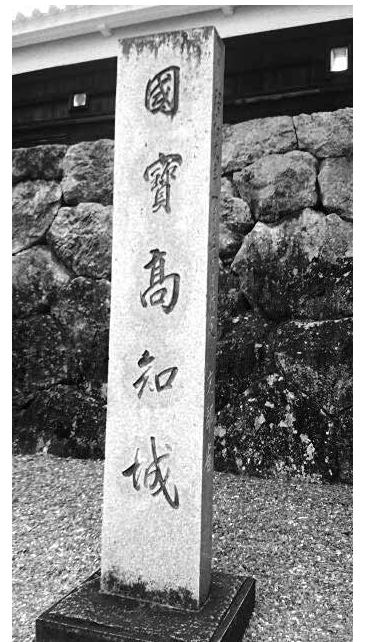 國寶高知城